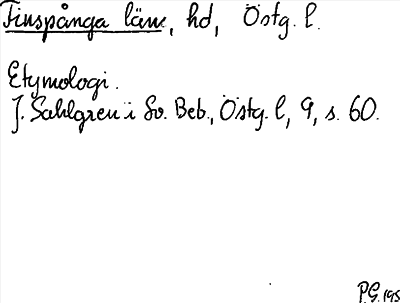 Finspånga län, hd, Östg. l.
Etymologi.
J. Sahlgren i Sv. Beb., Östg. l, 9, s. 60.
P.G. 195